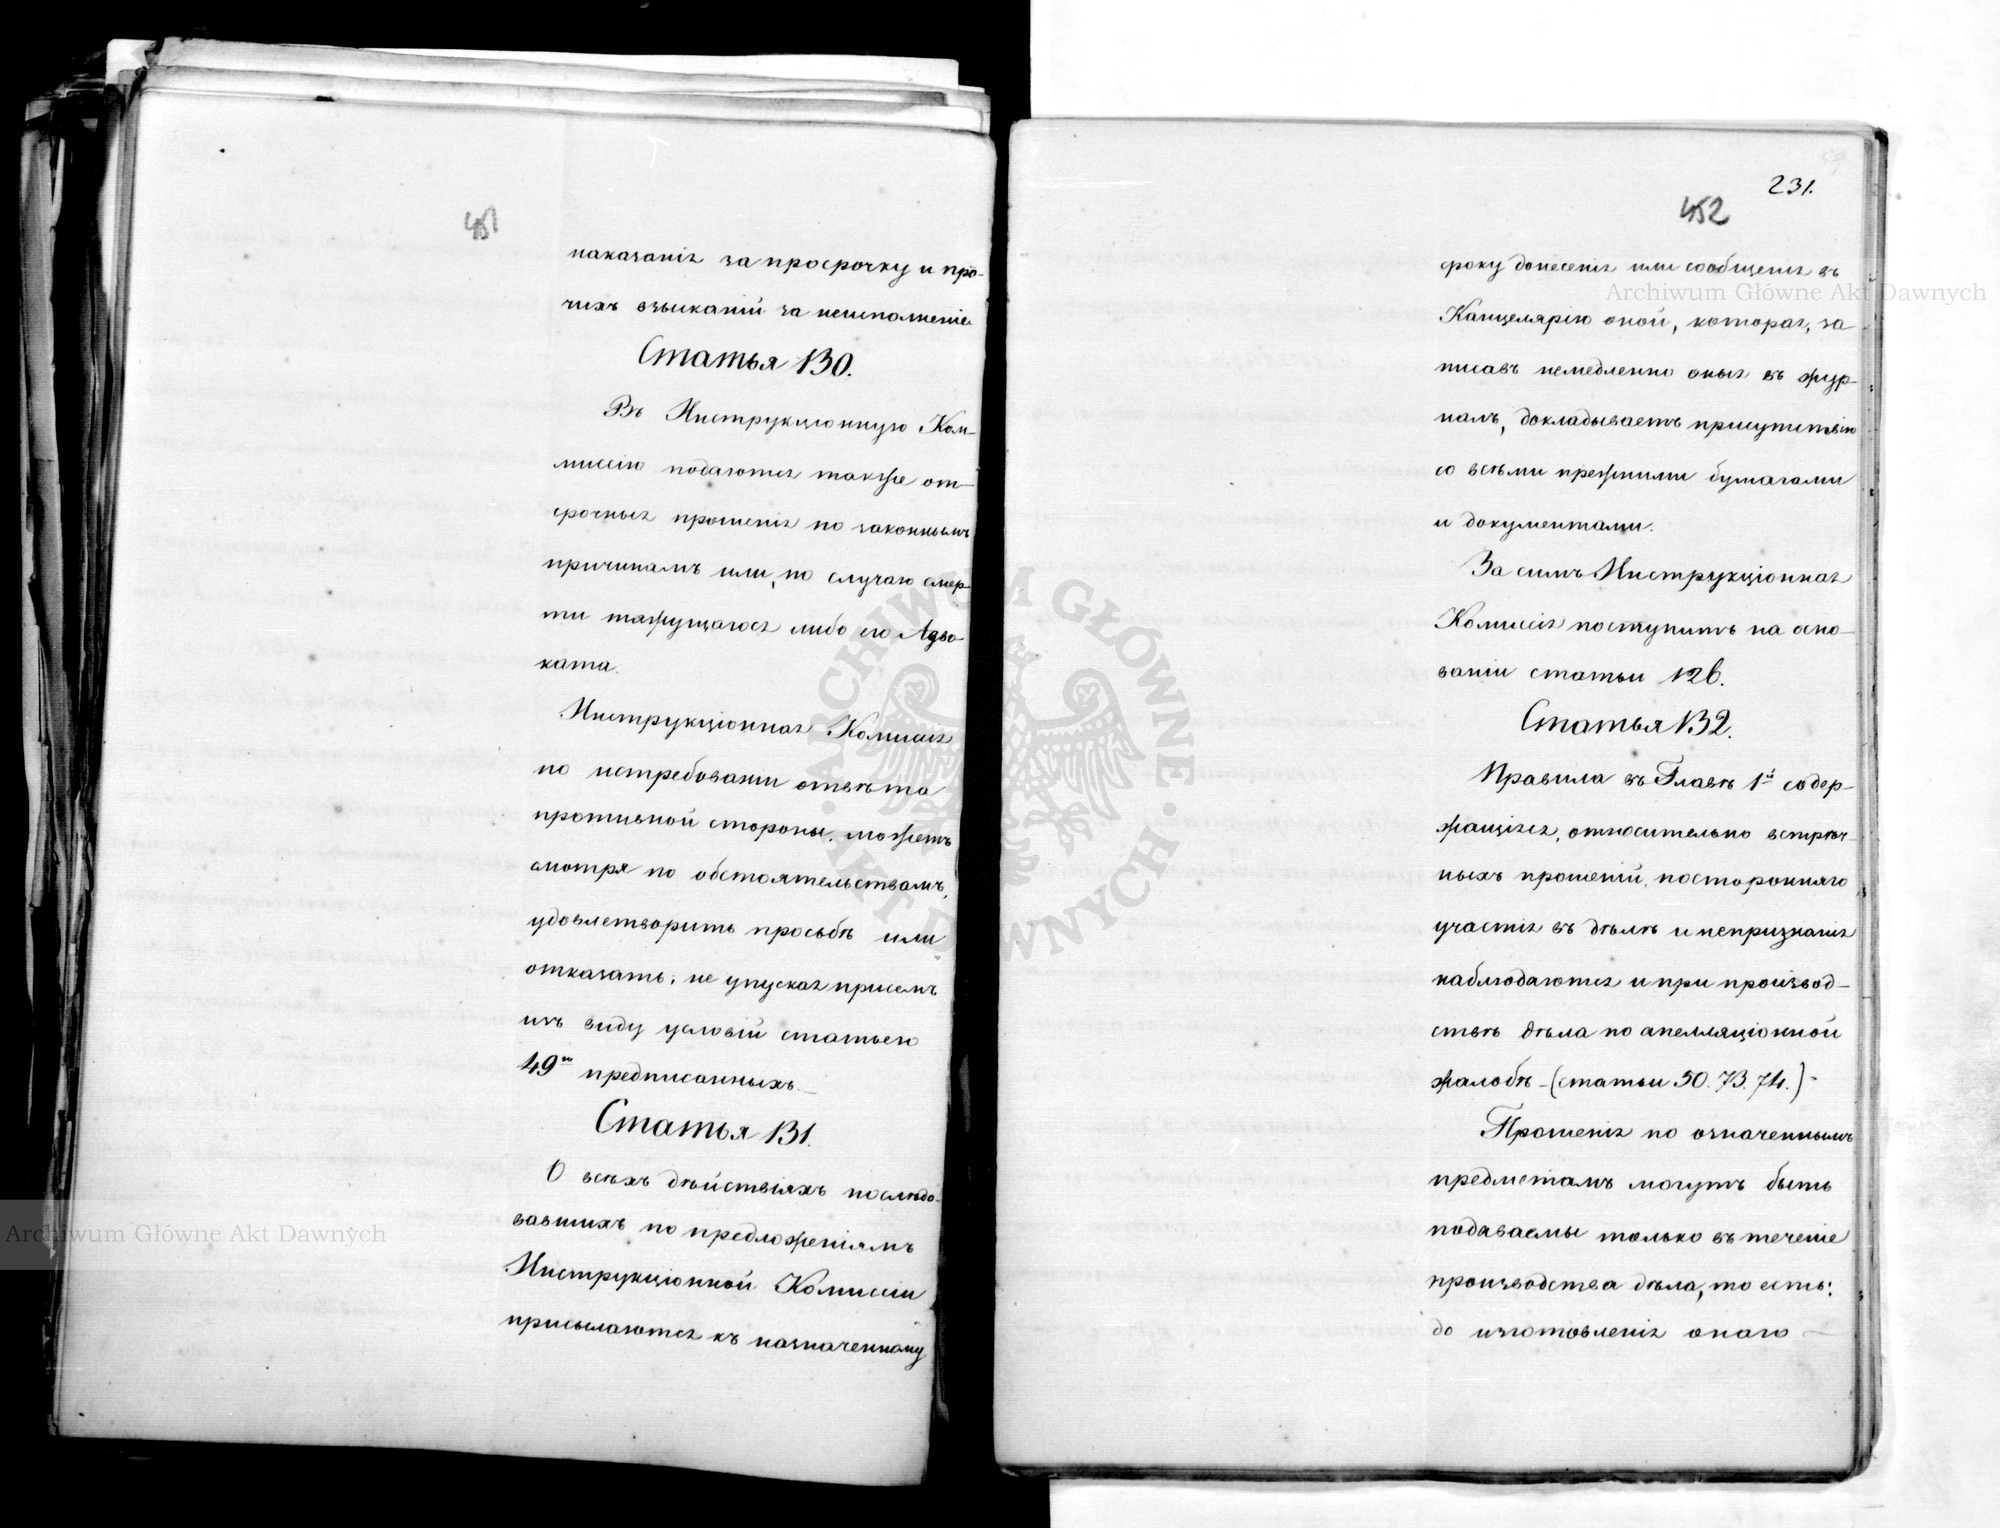 451
наказанія за просрочку и про-
чихъ взысканій за неисполненіе.
Статья 130.
Въ Инструкціонную Ком-
миссію подаются также от-
срочныя прошенія по законнымъ
причинамъ или, по случаю смер-
ти тяжущагося либо его Адво-
ката.
Инструкціонная Комисія
по истребованіи отвѣта
противной стороны, можетъ
смотря по обстоятельствамъ,
удовлетворить просьбѣ или
отказать, не упуская при семъ
изъ виду условій статьею
49ю предписанныхъ.
Статья 131.
О всѣхъ дѣйствіяхъ послѣдо-
вавшихъ по предложеніямъ
Инструкціонной Комиссіи
присылаются къ назначенному
231.
452
сроку донесенія или сообщенія въ
Канцелярію оной, которая, за-
писавъ немедленно оныя въ жур-
налъ, докладываетъ присутствію
со всѣми прежними бумагами
и документами.
За симъ Инструкціонная
Комиссія поступитъ на осно-
ваніи статьи 126.
Статья 132.
Правила въ Главѣ 1й содер-
жащіяся, относительно встрѣч-
ныхъ прошеній, посторонняго
участія въ дѣлѣ и непризнанія
наблюдаются и при производ-
ствѣ дѣла по апелляціонной
жалобѣ - (статьи 50. 73. 74.) -
Прошенія по означеннымъ
предметамъ могутъ быть
подаваемы только въ теченіе
производства дѣла, то есть:
до изготовленія онаго —
Archiwum Główne Akt Dawnych
Archiwum Główne Akt Dawnych
ARCHIWUM GŁÓWNE AKT DAWNYCH